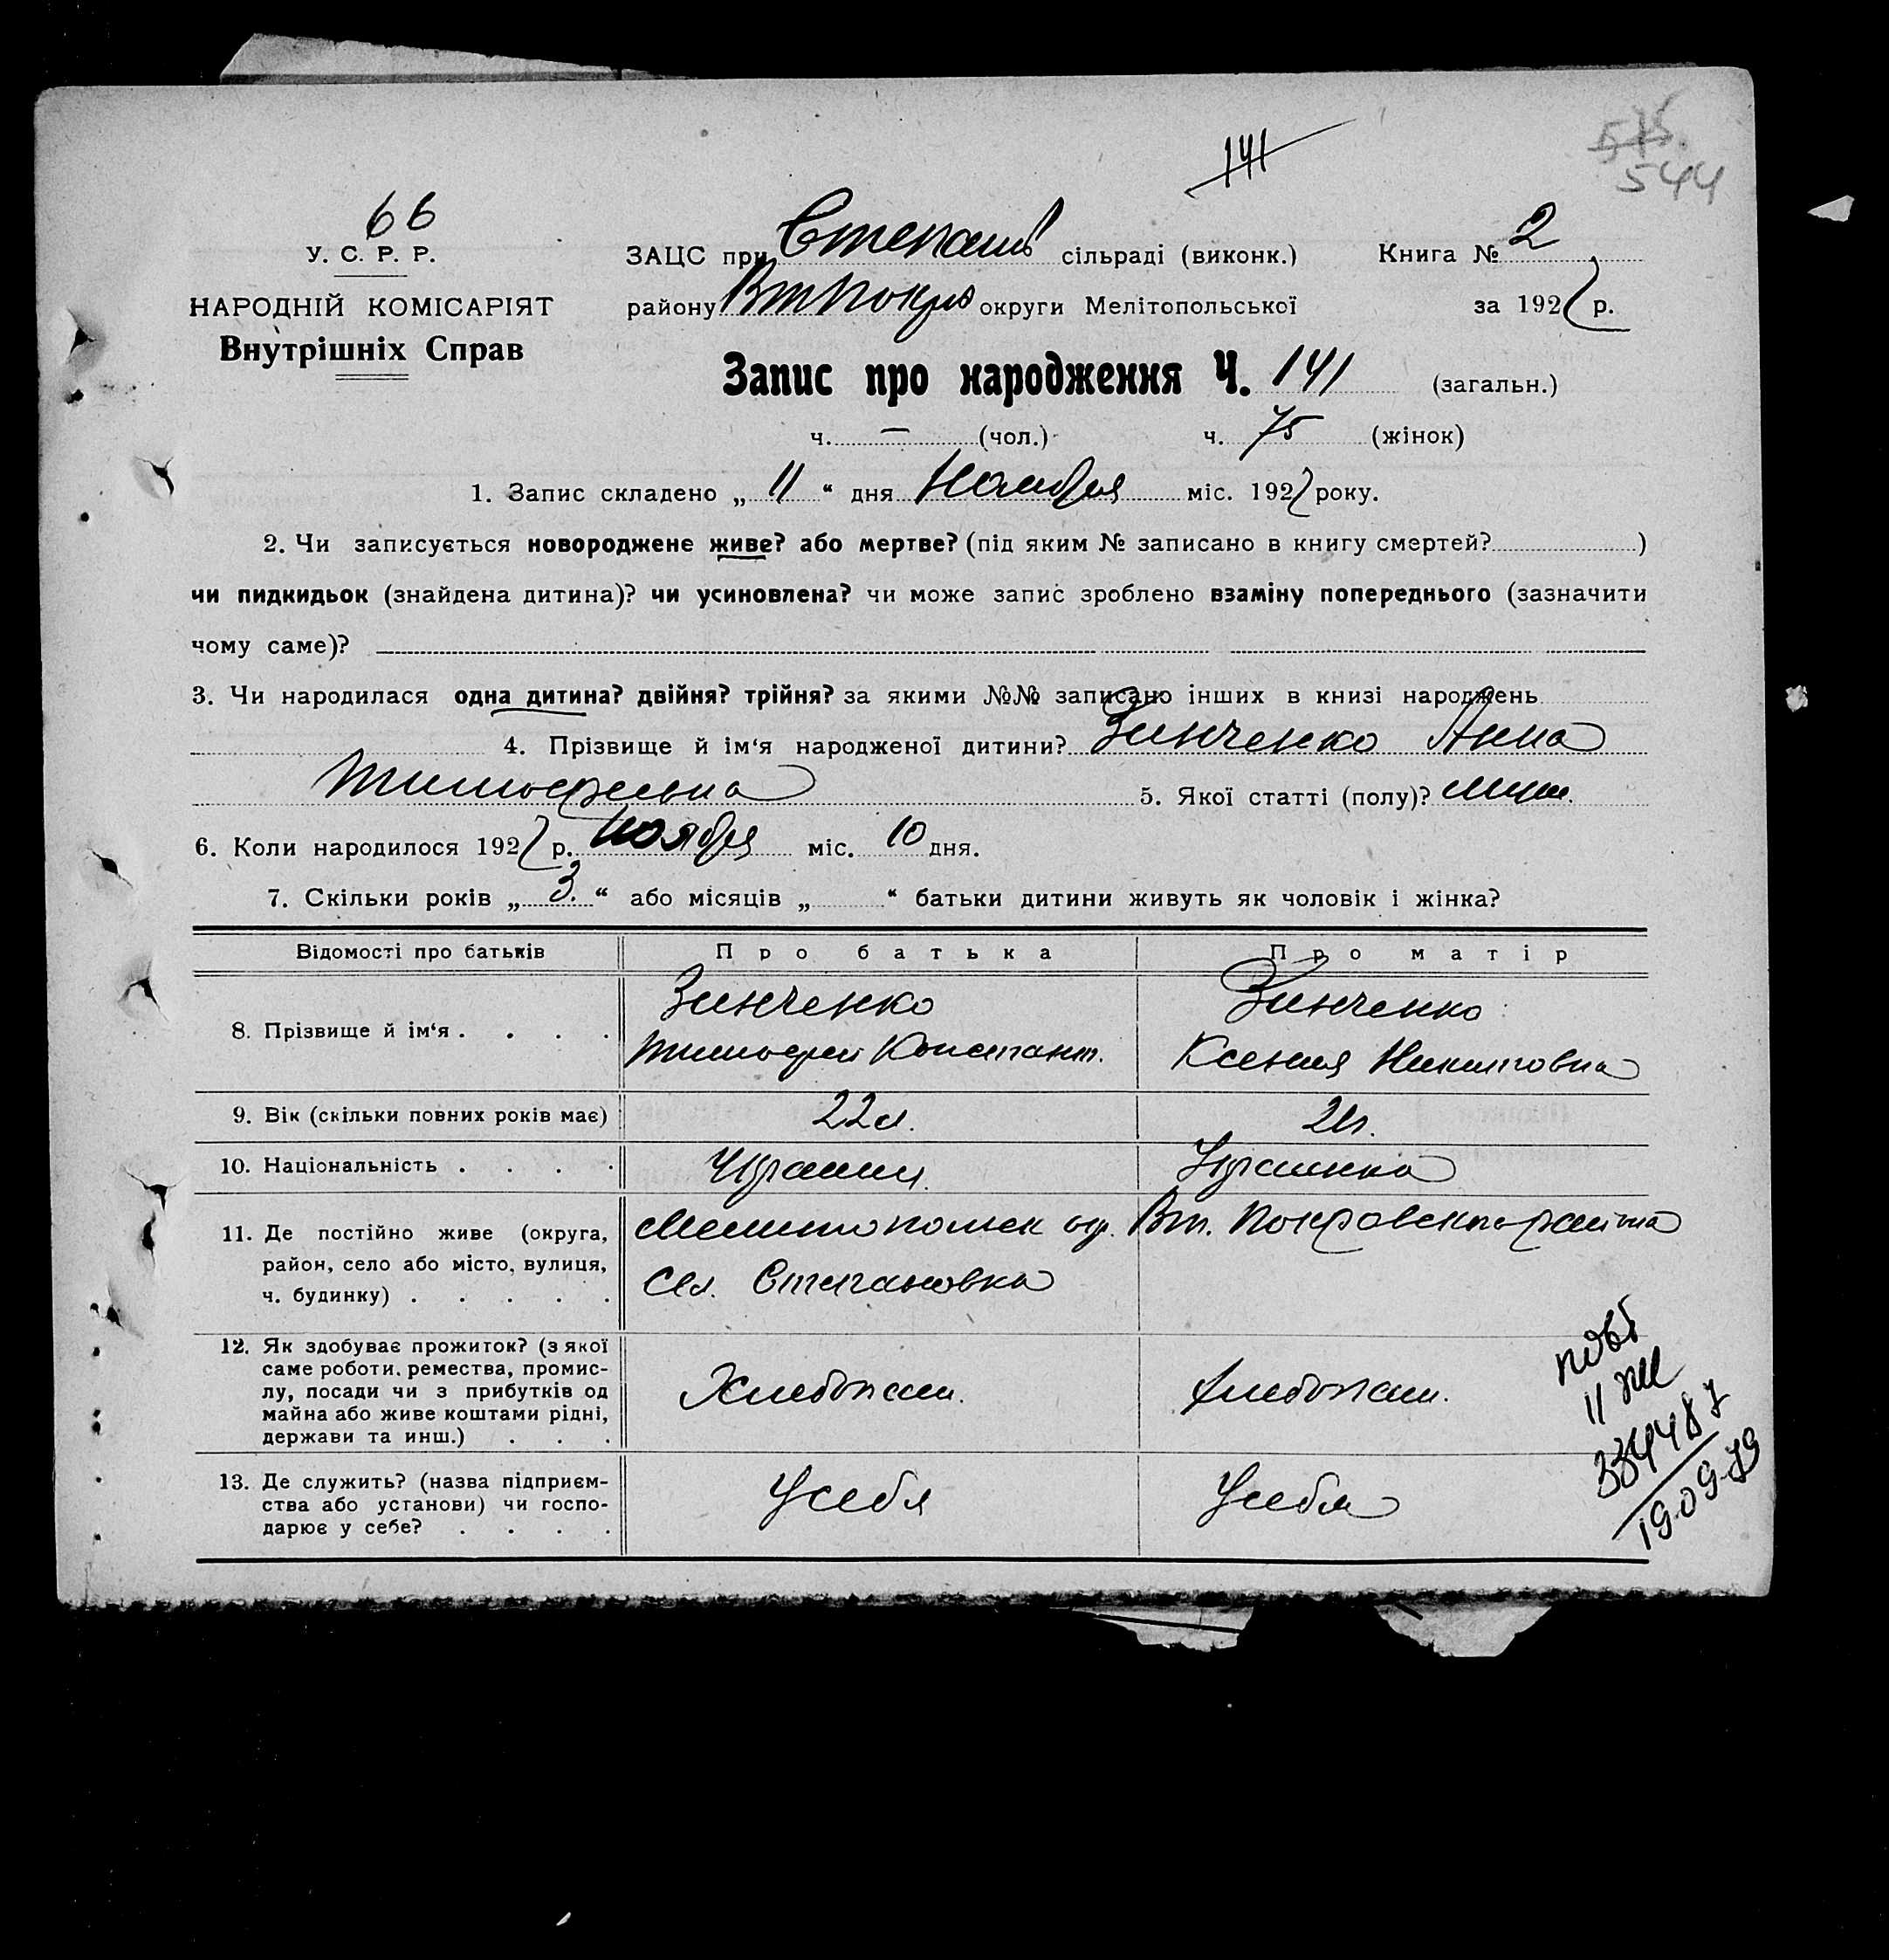 141
515.
544
66
У. С. Р. Р.
НАРОДНІЙ КОМІСАРІЯТ
Внутрішніх Справ
ЗАЦС при Степанів сільраді (виконк.) Книга № 2
району Вт Покр округи Мелітопольської за 1927 р.
Запис про народження Ч. 141 (загальн.)
ч. — (чол.) ч. 75 (жінок)
1. Запис складено „ 11 “ дня Ноября міс. 1927 року.
2. Чи записується новороджене живе? або мертве? (під яким № записано в книгу смертей? )
чи пидкидьок (знайдена дитина)? чи усиновлена? чи може запис зроблено взаміну попереднього (зазначити
чому саме)?
3. Чи народилася одна дитина? двійня? трійня? за якими №№ записано інших в книзі народжень
4. Прізвище й ім‘я народженої дитини? Зинченко Анна
Тимофеевна 5. Якої статті (полу)?
6. Коли народилося 1927 р. ноября міс. 10 дня.
7. Скільки років „ 3. “ або місяців „ “ батьки дитини живуть як чоловік і жінка?
Відомості про батьків Про батька Про матір
8. Прізвище й ім‘я . . . . Зинченко Зинченко
Тимофей Констант. Ксения Никитовна
9. Вік (скільки повних років має) 22 л. 21 л.
10. Національність . . . . Украинец. Украинка
11. Де постійно живе (округа, Мелитопольск окр. Вт. Покровского района
район, село або місто, вулиця, Сел. Степановка
ч. будинку) . . . . .
12. Як здобуває прожиток? (з якої
саме роботи, ремества, промис-
лу, посади чи з прибутків од Хлебопаш. Хлебопаш.
майна або живе коштами рідні,
держави та инш.) . . .
13. Де служить? (назва підприєм-
ства або установи) чи госпо- У себя У себя
дарює у себе? . . . .
повт
II ЖС
334487
19.09.79